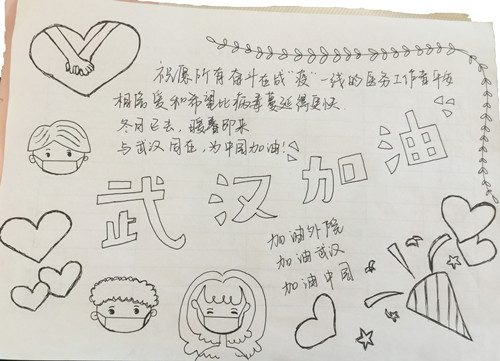 祝愿所有奋斗在战"疫"一线的医务工作者平安
相信爱和希望比病毒蔓延得更快.
冬月已去,暖春即来
与武汉同在,为中国加油!
武汉加油
加油外院
加油武汉
加油中国